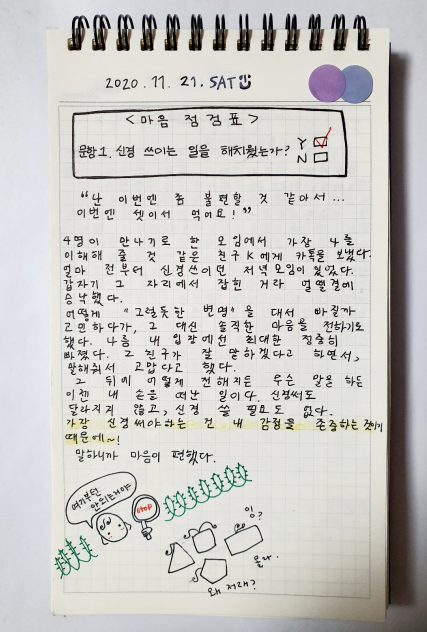 2020. 11. 21. SAT
< 마음 점검표 >
문항 1. 신경 쓰이는 일을 해치웠는가? Y
N
"난 이번엔 좀 불편할 것 같아서...
이번엔 셋이서 먹어요!"
4명이 만나기로 한 모임에서 가장 나를
이해해 줄 것 같은 친구 K에게 카톡을 보냈다.
얼마 전부터 신경쓰이던 저녁모임이 있었다.
갑자기 그 자리에서 잡힌 거라 얼떨결에
승낙했다.
어떻게 "그럴듯한 변명"을 대서 빠질까
고민하다가, 그 대신 솔직한 마음을 전하기로
했다. 나름 내 입장에선 최대한 정중히
빠졌다. 그 친구가 잘 말하겠다고 하면서,
말해줘서 고맙다고 했다.
그 뒤에 어떻게 전해지든 무슨 말을 하든
이젠 내 손을 떠난 일이다. 신경써도
달라지지 않고, 신경 쓸 필요도 없다.
가장 신경써야하는 건 내 감정을 존중하는 것이기
때문에~!
말하니까 마음이 편했다.
여기부턴
안되는거야
STOP
잉?
몰라.
왜 저래?